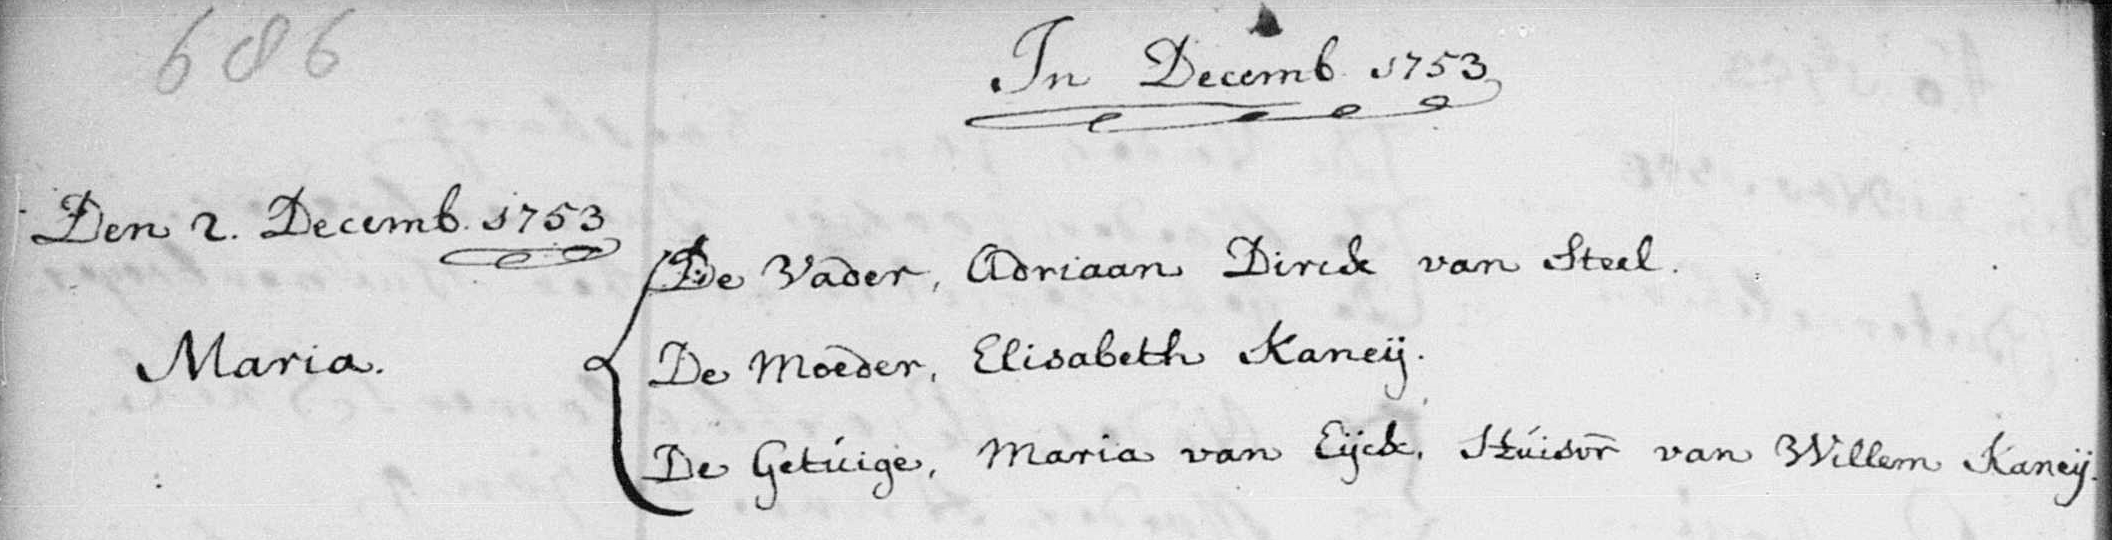 686
In Decemb. 1753
Den 2. Decemb. 1753
Maria.
De Vader, Adriaan Dirck van Steel.
De Moeder, Elisabeth Kaneij.
De Getúige, Maria van Eijck, Húisvr van Willem Kaneij.